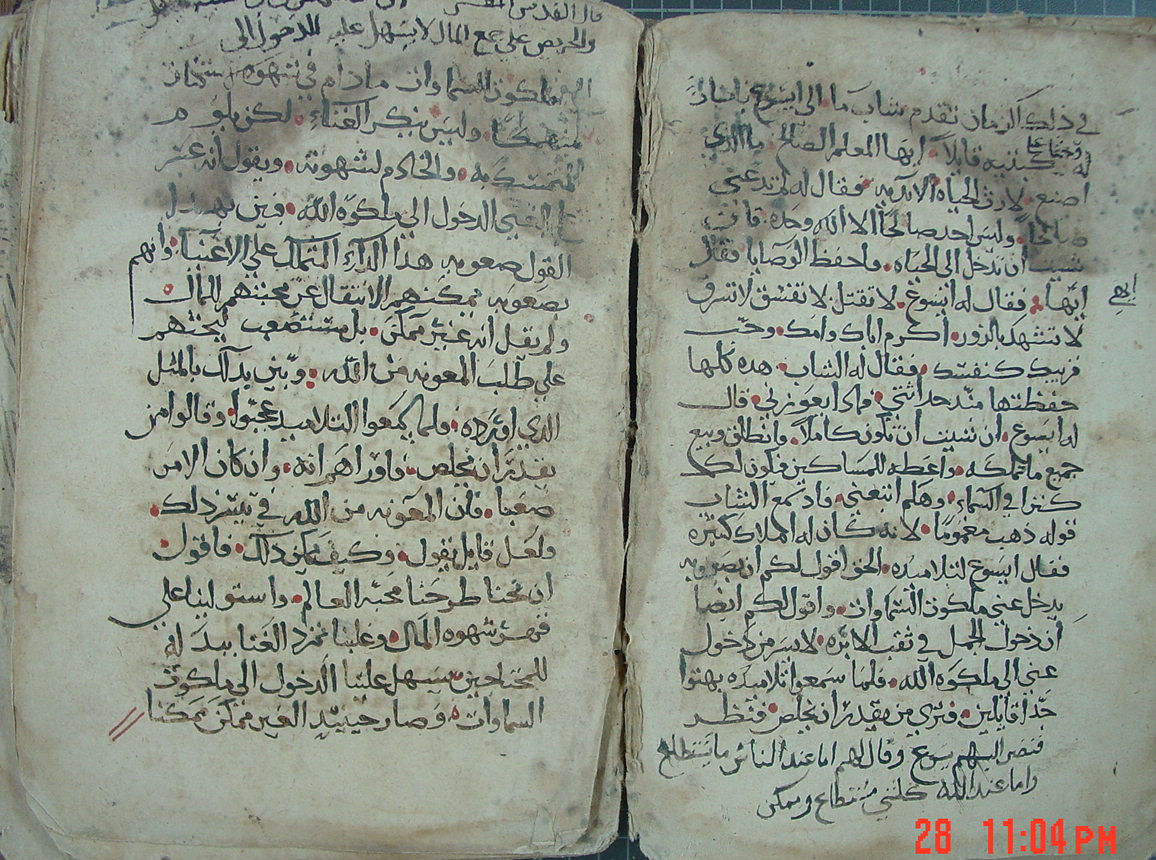 في ذلك الزمان تقدم شاب ما الى ايسوع
وجثا على
له ركبتيه قايلاً ايها المعلم الصالح ما الذي
اصنع لارث الحياه الابديه فقال له لم تدعني
صالحاً وليس احد صالحاً الا الله وحده فان
شيت ان تدخل الى الحياه فاحفظ الوصايا فقال
ايّها فقال له ايسوع لا تقتل لا تفسق لا تسرق
ايهي
لا تشهد بالزور اكرم اباك وامك وحب
قريبك كنفسك فقال له الشاب هده كلها
حفظتها مند حداثتي فمادا يعوزني قال
له ايسوع ان شيت ان تكون كاملاً فانطلق وبيع
جميع ما تملكه واعطه للمساكين فيكون لك
كنزا في السماء وهلم اتبعني فلما سمع الشاب
قوله ذهب مغموماً لانه كان له املاك كثيره
فقال ايسوع لتلاميده الحق اقول لكم ان بصعوبه
يدخل غني ملكوت السماوات واقول لكم ايضا
ان دخول الجمل في ثقب الابره لايسر من دخول
غني الى ملكوة الله فلما سمعوا تلاميده بهتوا
جداً قايلين فترى من يقدر ان يخلص فنظر
اليهم يسوع وقال لهم اما عند الناس ما يستطاع
واما عند الله كلشي مستطاع وممكن
قال القديس
والحريص على جمع المال لا يسهل عليه الدخول الى
ملكوت السماوات ما دام في شهوه
منهمكا وليس ينكر الغناء لكن يلوم
المتمسك به والخادم لشهوته ويقول انه عسر
على الغني الدخول الى ملكوة الله فبين بهدا
القول صعوبه هذا الداء المتملك على الاغنيا وانهم
بصعوبه يمكنهم الانتقال عن محبتهم للمال
ولم يقل انه غير ممكن بل مستصعب ليحثهم
على طلب المعونه من الله وبين بداك بالمثل
الدي اورده فلما سمعوا التلاميد عجبوا وقالوا من
يقدر ان يخلص فاوراهم انه وان كان الامر
صعبا فان المعونه من الله في تيسر ذلك
ولعل قايل يقول وكيف يمكن ذلك فاقول
ان نحنا طرحنا محبة العالم واستولينا على
قهر شهوه المال وغلبنا تمرد الغنا ببدله
للمحتاجين سيسهل علينا الدخول الى ملكوت
السماوات وصار حينيد الغير ممكن ممكنا
28 11:04 PM